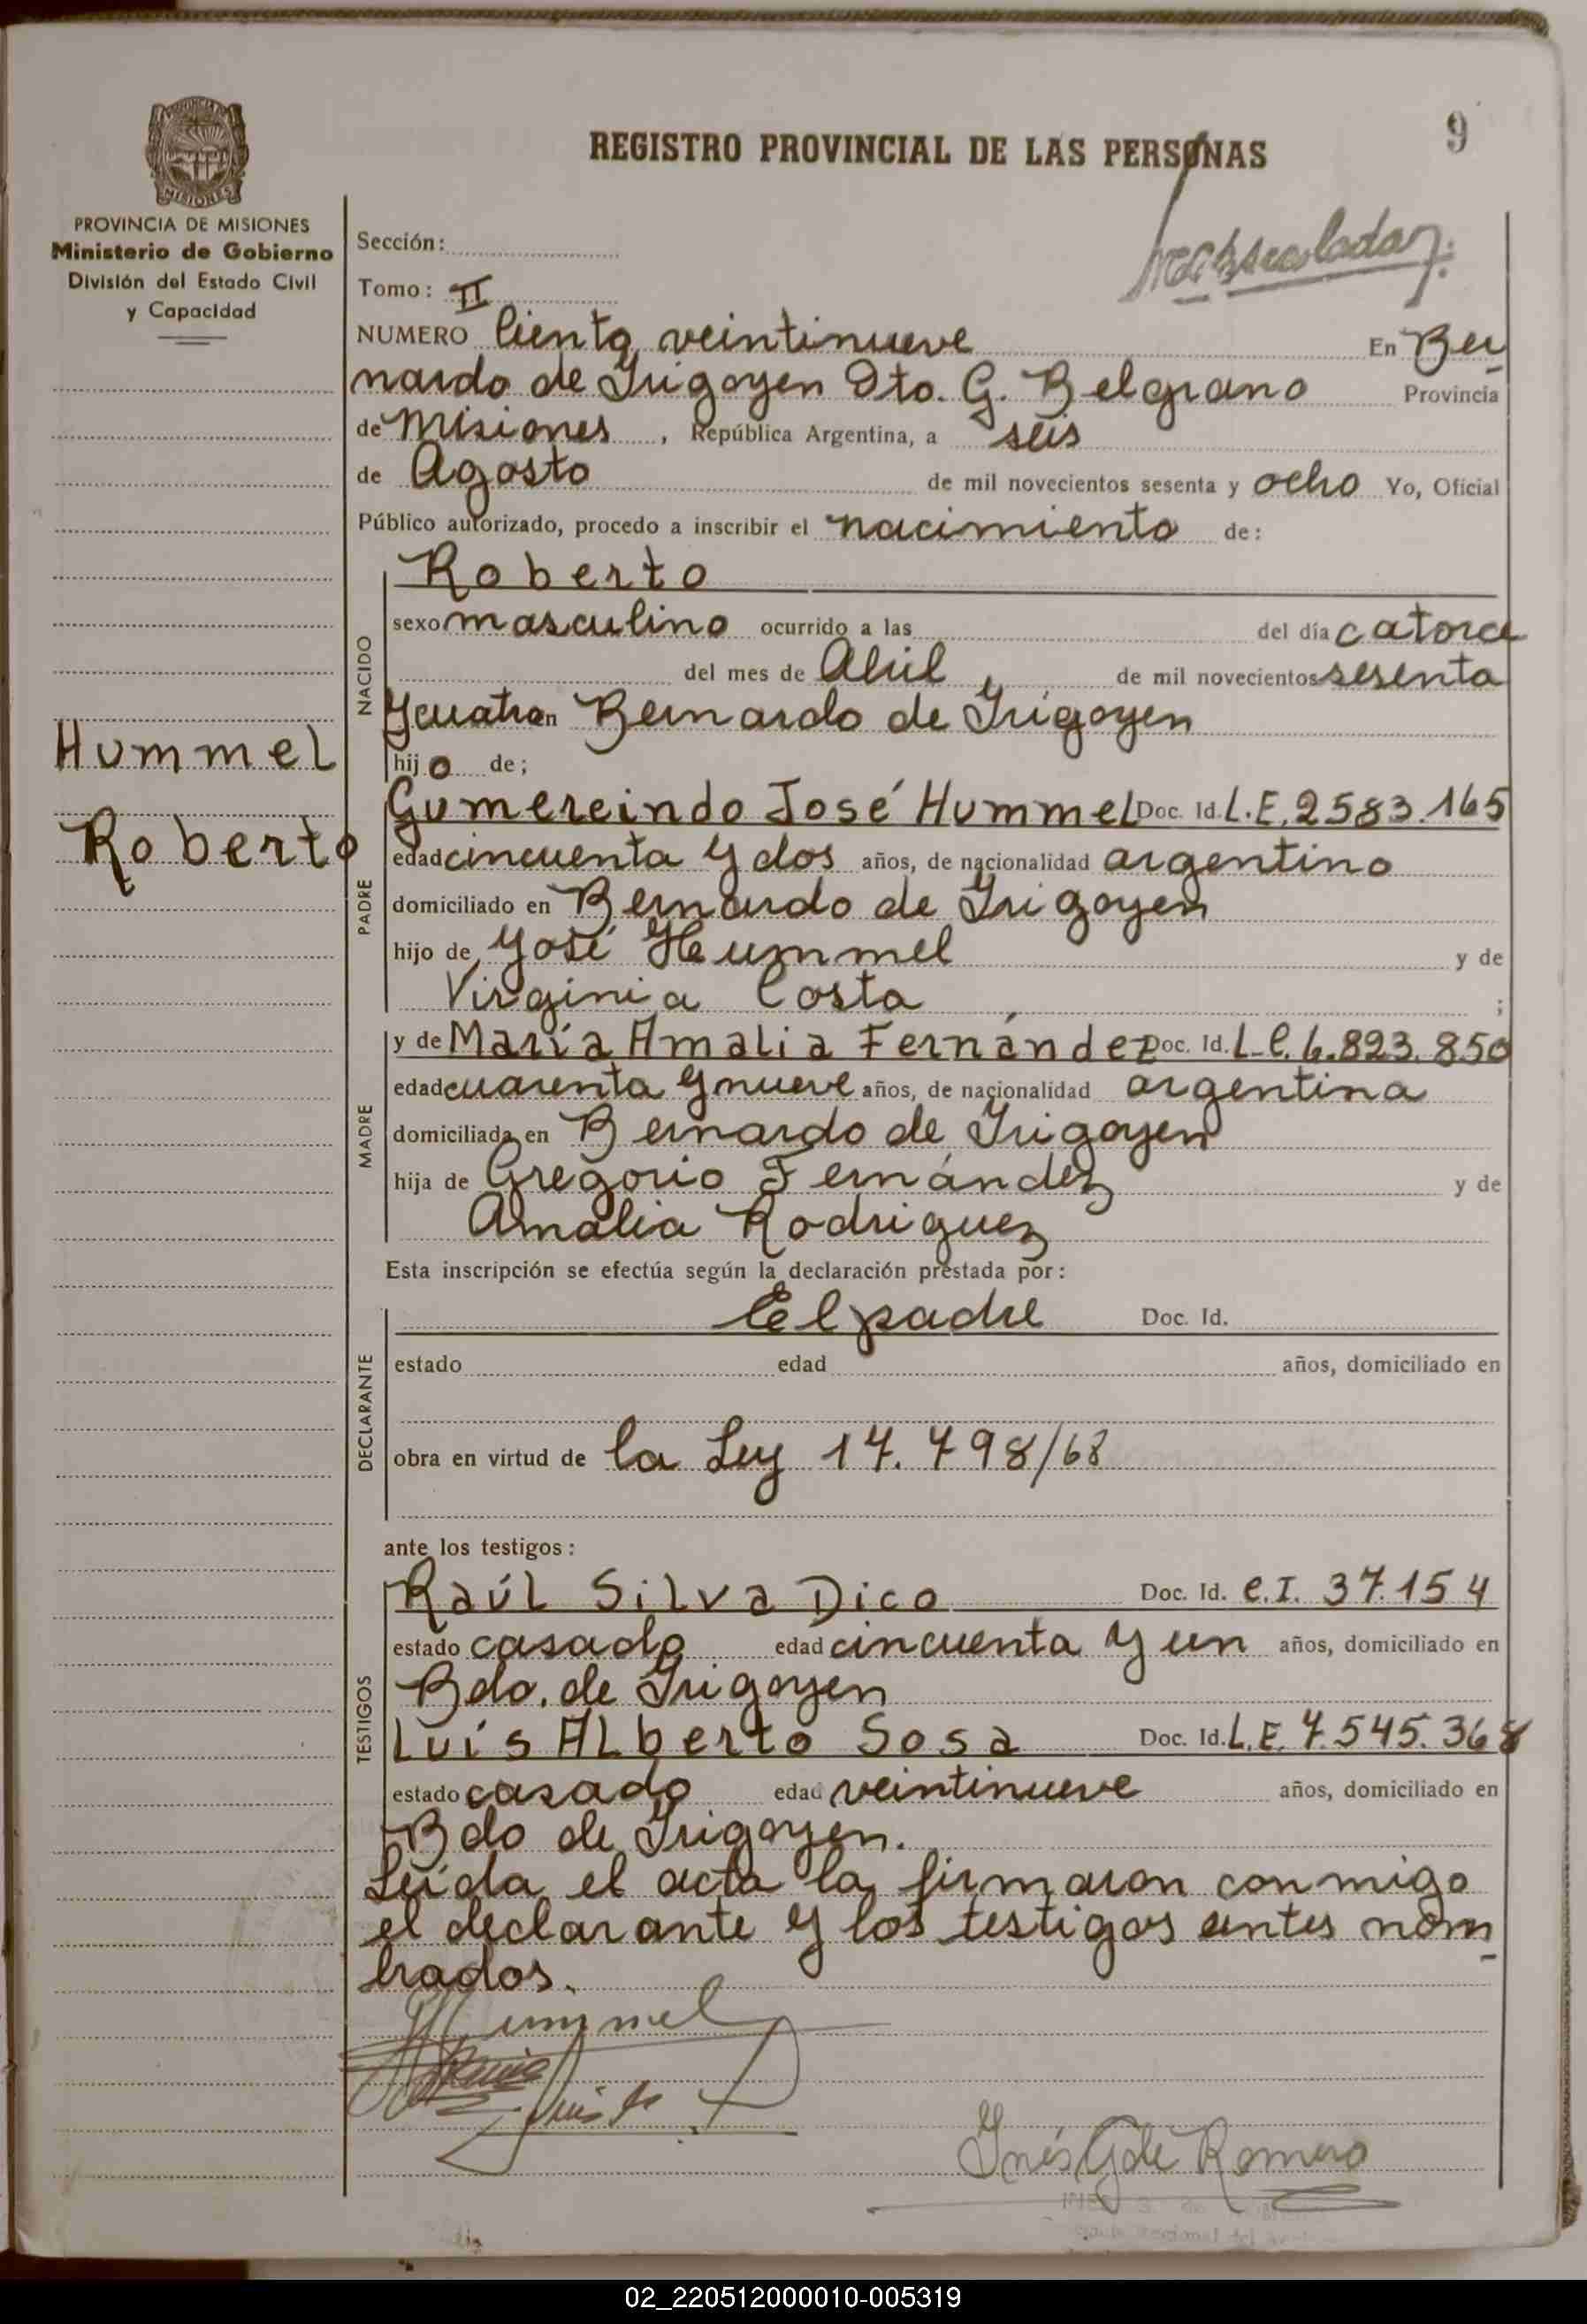 9
REGISTRO PROVINCIAL DE LAS PERSONAS
MISIONES
PROVINCIA DE MISIONES
Ministerio de Gobierno
División del Estado Civil
y Capacidad
Hummel
Roberto
Sección:
Tomo: II
NUMERO Ciento veintinueve En Ber
nardo de Irigoyen Dto. G. Belgrano Provincia
de Misiones, República Argentina, a seis
de Agosto de mil novecientos sesenta y ocho Yo, Oficial
Público autorizado, procedo a inscribir el nacimiento de:
NACIDO
Roberto
sexo masculino ocurrido a las del día catorce
del mes de Abril, de mil novecientos sesenta
y cuatro en Bernardo de Irigoyen
hijo de;
PADRE
Gumereindo José Hummel Doc. Id. L.E. 2583.165
edad cincuenta y dos años, de nacionalidad argentino
domiciliado en Bernardo de Irigoyen
hijo de José Hummel y de
Virginia Costa ;
MADRE
y de María Amalia Fernández Doc. Id. L.C. 6.823.850
edad cuarenta y nueve años, de nacionalidad argentina
domiciliada en Bernardo de Irigoyen
hija de Gregorio Fernández y de
Amalia Rodriguez
Esta inscripción se efectúa según la declaración prestada por:
DECLARANTE
El padre Doc. Id.
estado edad años, domiciliado en
obra en virtud de la Ley 17.798/68
ante los testigos:
TESTIGOS
Raúl Silva Dico Doc. Id. C.I. 37.154
estado casado edad cincuenta y un años, domiciliado en
Bdo. de Irigoyen
Luis Alberto Sosa Doc. Id. L.E. 7.545.368
estado casado edad veintinueve años, domiciliado en
Bdo de Irigoyen.
Leida el acta la firmaron conmigo
el declarante y los testigos antes nom
brados.
Hummel
Inés G de Romero
02_220512000010-005319